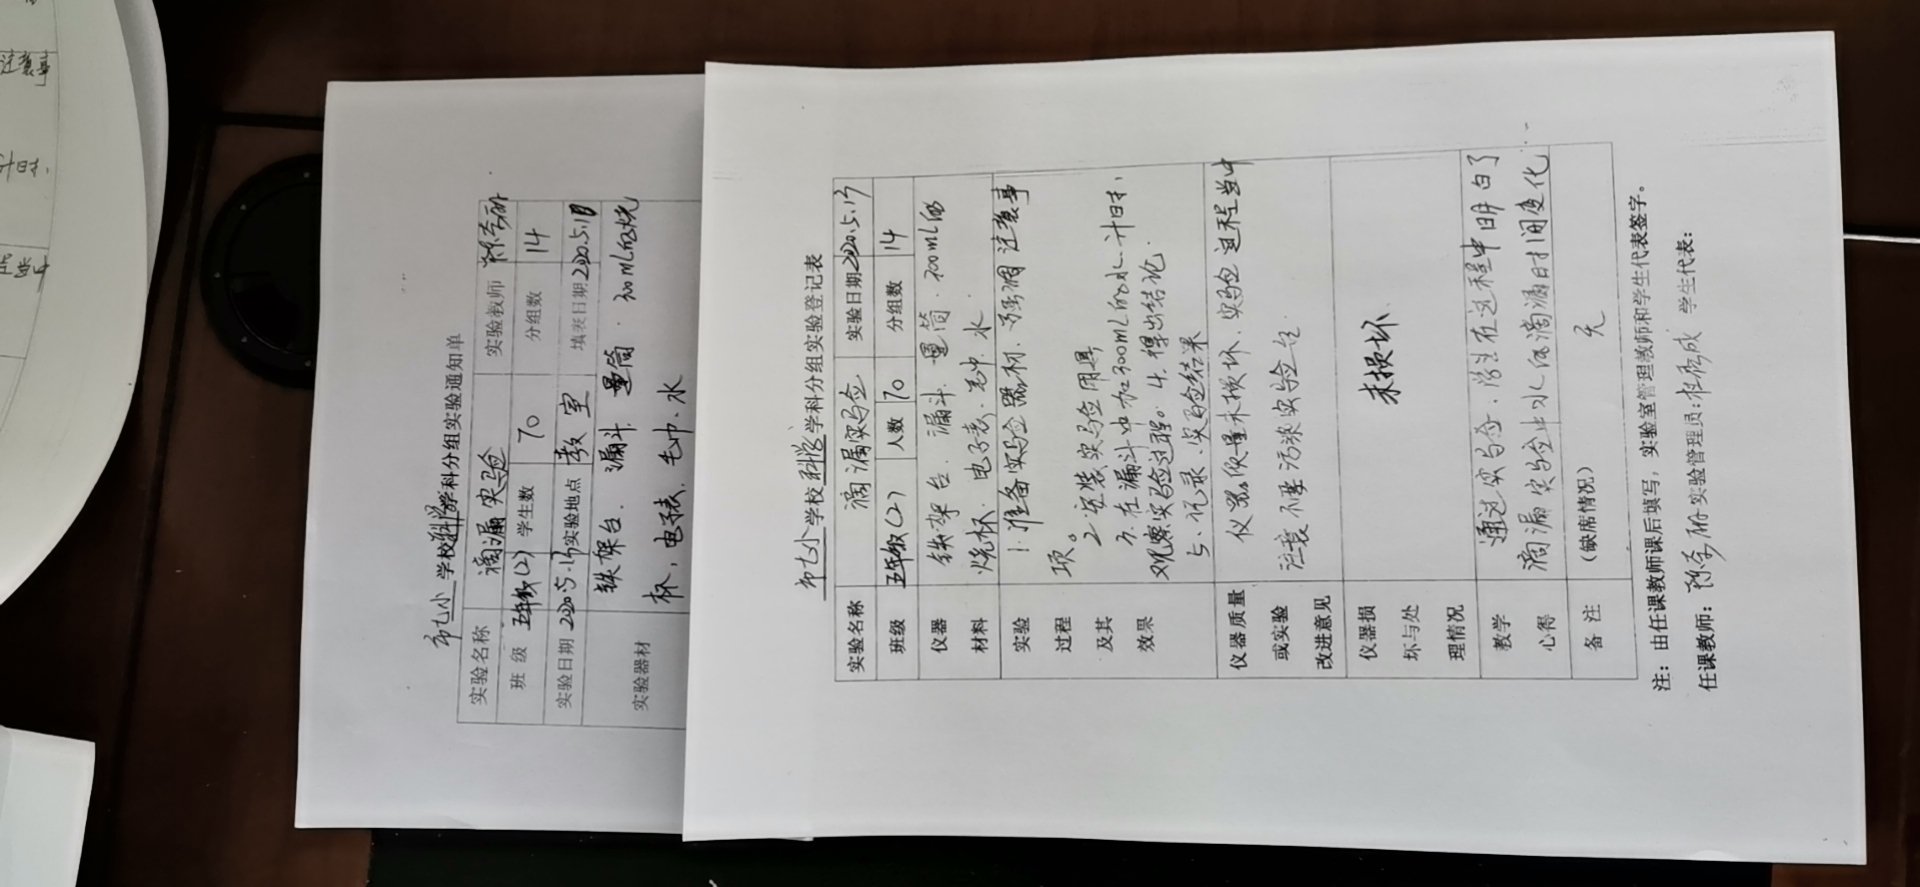 市七小学校科学学科分组实验通知单
实验名称 滴漏实验 实验教师
班级 五年级(2) 学生数 70 分组数 14
实验日期 2020.5.13 实验地点 教室 填表日期 2020.5.11
实验器材 铁架台、漏斗、量筒、300mL的烧
杯,电子表、毛巾、水
市七小学校科学学科分组实验登记表
实验名称 滴漏实验 实验日期 2020.5.13
班级 五年级(2) 人数 70 分组数 14
仪器 铁架台、漏斗、量筒、300ml的
材料 烧杯、电子表、毛巾、水
实验 1.准备实验器材、强调注意事
过程 项。
及其 2.安装实验用具
效果 3.在漏斗中加300mL的水、计时、
观察实验过程。4.得出结论.
5.记录、实验结果
仪器质量 仪器质量未损坏、实验过程当中
或实验 注意不要污染实验台.
改进意见
仪器损
坏与处 未损坏
理情况
教学 通过实验、学生在过程中明白了
心得 滴漏实验中水的滴漏时间变化
备注 (缺席情况) 无
注:由任课教师课后填写,实验室管理教师和学生代表签字。
任课教师: 实验管理员: 学生代表:
注意事
计时、